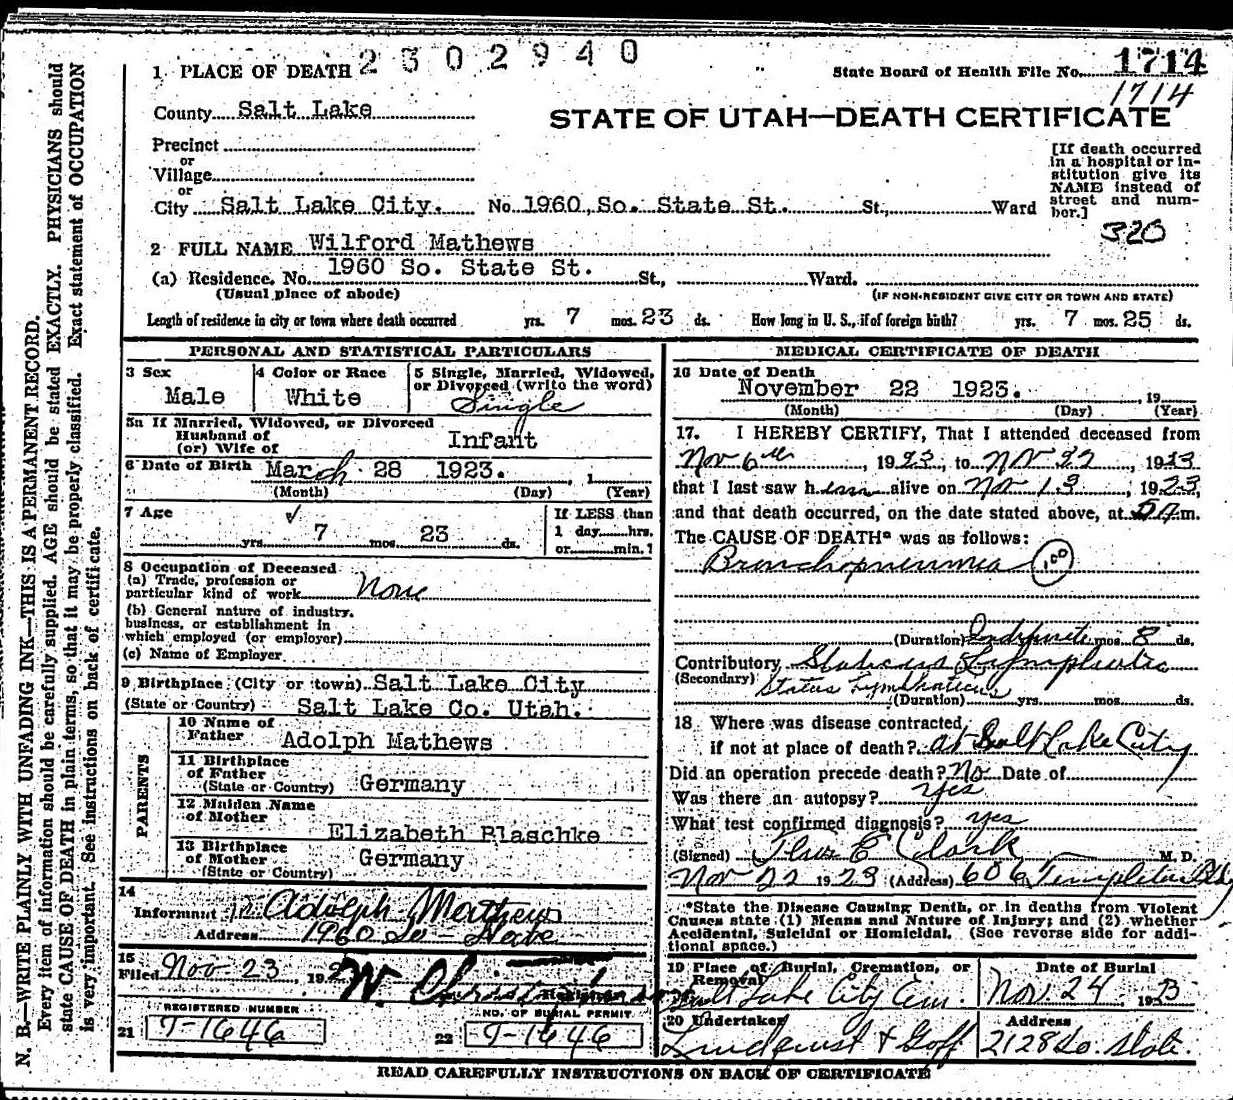 2302940
1 PLACE OF DEATH
State Board of Health File No. 1714
1714
County Salt Lake
STATE OF UTAH—DEATH CERTIFICATE
Precinct
or
Village
or
City Salt Lake City. No 1960 So. State St. St., Ward
[If death occurred
in a hospital or in-
stitution give its
NAME instead of
street and num-
ber.]
320
2 FULL NAME Wilford Mathews
(a) Residence, No. 1960 So. State St. St., Ward.
(Usual place of abode) (IF NON-RESIDENT GIVE CITY OR TOWN AND STATE)
Length of residence in city or town where death occurred yrs. 7 mos. 23 ds. How long in U. S., if of foreign birth? yrs. 7 mos. 25 ds.
PERSONAL AND STATISTICAL PARTICULARS
3 Sex Male
4 Color or Race White
5 Single, Married, Widowed,
or Divorced (write the word)
Single
5a If Married, Widowed, or Divorced
Husband of
(or) Wife of
Infant
6 Date of Birth March 28 1923. , 1
(Month) (Day) (Year)
7 Age
7 23
yrs. mos. ds.
If LESS than
1 day hrs.
or min.?
8 Occupation of Deceased
(a) Trade, profession or
particular kind of work None
(b) General nature of industry,
business, or establishment in
which employed (or employer)
(c) Name of Employer
9 Birthplace (City or town) Salt Lake City
(State or Country) Salt Lake Co. Utah.
PARENTS
10 Name of
Father Adolph Mathews
11 Birthplace
of Father
(State or Country) Germany
12 Maiden Name
of Mother
Elizabeth Blaschke
13 Birthplace
of Mother
(State or Country) Germany
14
Informant Adolph Mathews
Address 1960 So - State
15
Filed Nov 23, 192
W. Christ
Registrar
REGISTERED NUMBER
21 T-1646
NO. OF BURIAL PERMIT
22 T-1646
MEDICAL CERTIFICATE OF DEATH
16 Date of Death
November 22 1923. , 19
(Month) (Day) (Year)
17. I HEREBY CERTIFY, That I attended deceased from
Nov 6th, 1923, to Nov 22, 1923
that I last saw him alive on Nov 13, 1923,
and that death occurred, on the date stated above, at m.
The CAUSE OF DEATH* was as follows:
Bronchopneumonia 100
(Duration) Indefinite mos 8 ds.
Contributory Status Lymphatic
(Secondary) Status Lymphaticus
(Duration) yrs. mos. ds.
18 Where was disease contracted,
if not at place of death? at Salt Lake City
Did an operation precede death? No Date of
Was there an autopsy? Yes
What test confirmed diagnosis? yes
(Signed) E Clark M. D.
Nov 22 1923 (Address) 606 Templeton Bldg
*State the Disease Causing Death, or in deaths from Violent
Causes state (1) Means and Nature of Injury; and (2) whether
Accidental, Suicidal or Homicidal. (See reverse side for addi-
tional space.)
19 Place of Burial, Cremation, or
Removal
Salt Lake City Cem.
Date of Burial
Nov. 24 1923
20 Undertaker
Lindquist & Goff
Address
2128 So. State.
READ CAREFULLY INSTRUCTIONS ON BACK OF CERTIFICATE
N. B.—WRITE PLAINLY WITH UNFADING INK—THIS IS A PERMANENT RECORD.
Every item of information should be carefully supplied. AGE should be stated EXACTLY. PHYSICIANS should
state CAUSE OF DEATH in plain terms, so that it may be properly classified. Exact statement of OCCUPATION
is very important. See instructions on back of certificate.